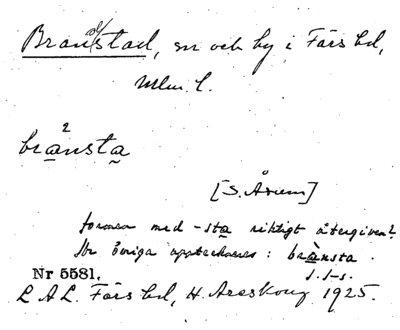 Branstad, sn och by i Färs hd,
Mlm. l.
2
bränsta
[S. Åsum]
formen med -sta riktigt återgiven?
för övriga upptecknares: bränsta.
Nr 5581. S. I-s.
L A L. Färs hd, H. Areskoug 1925.